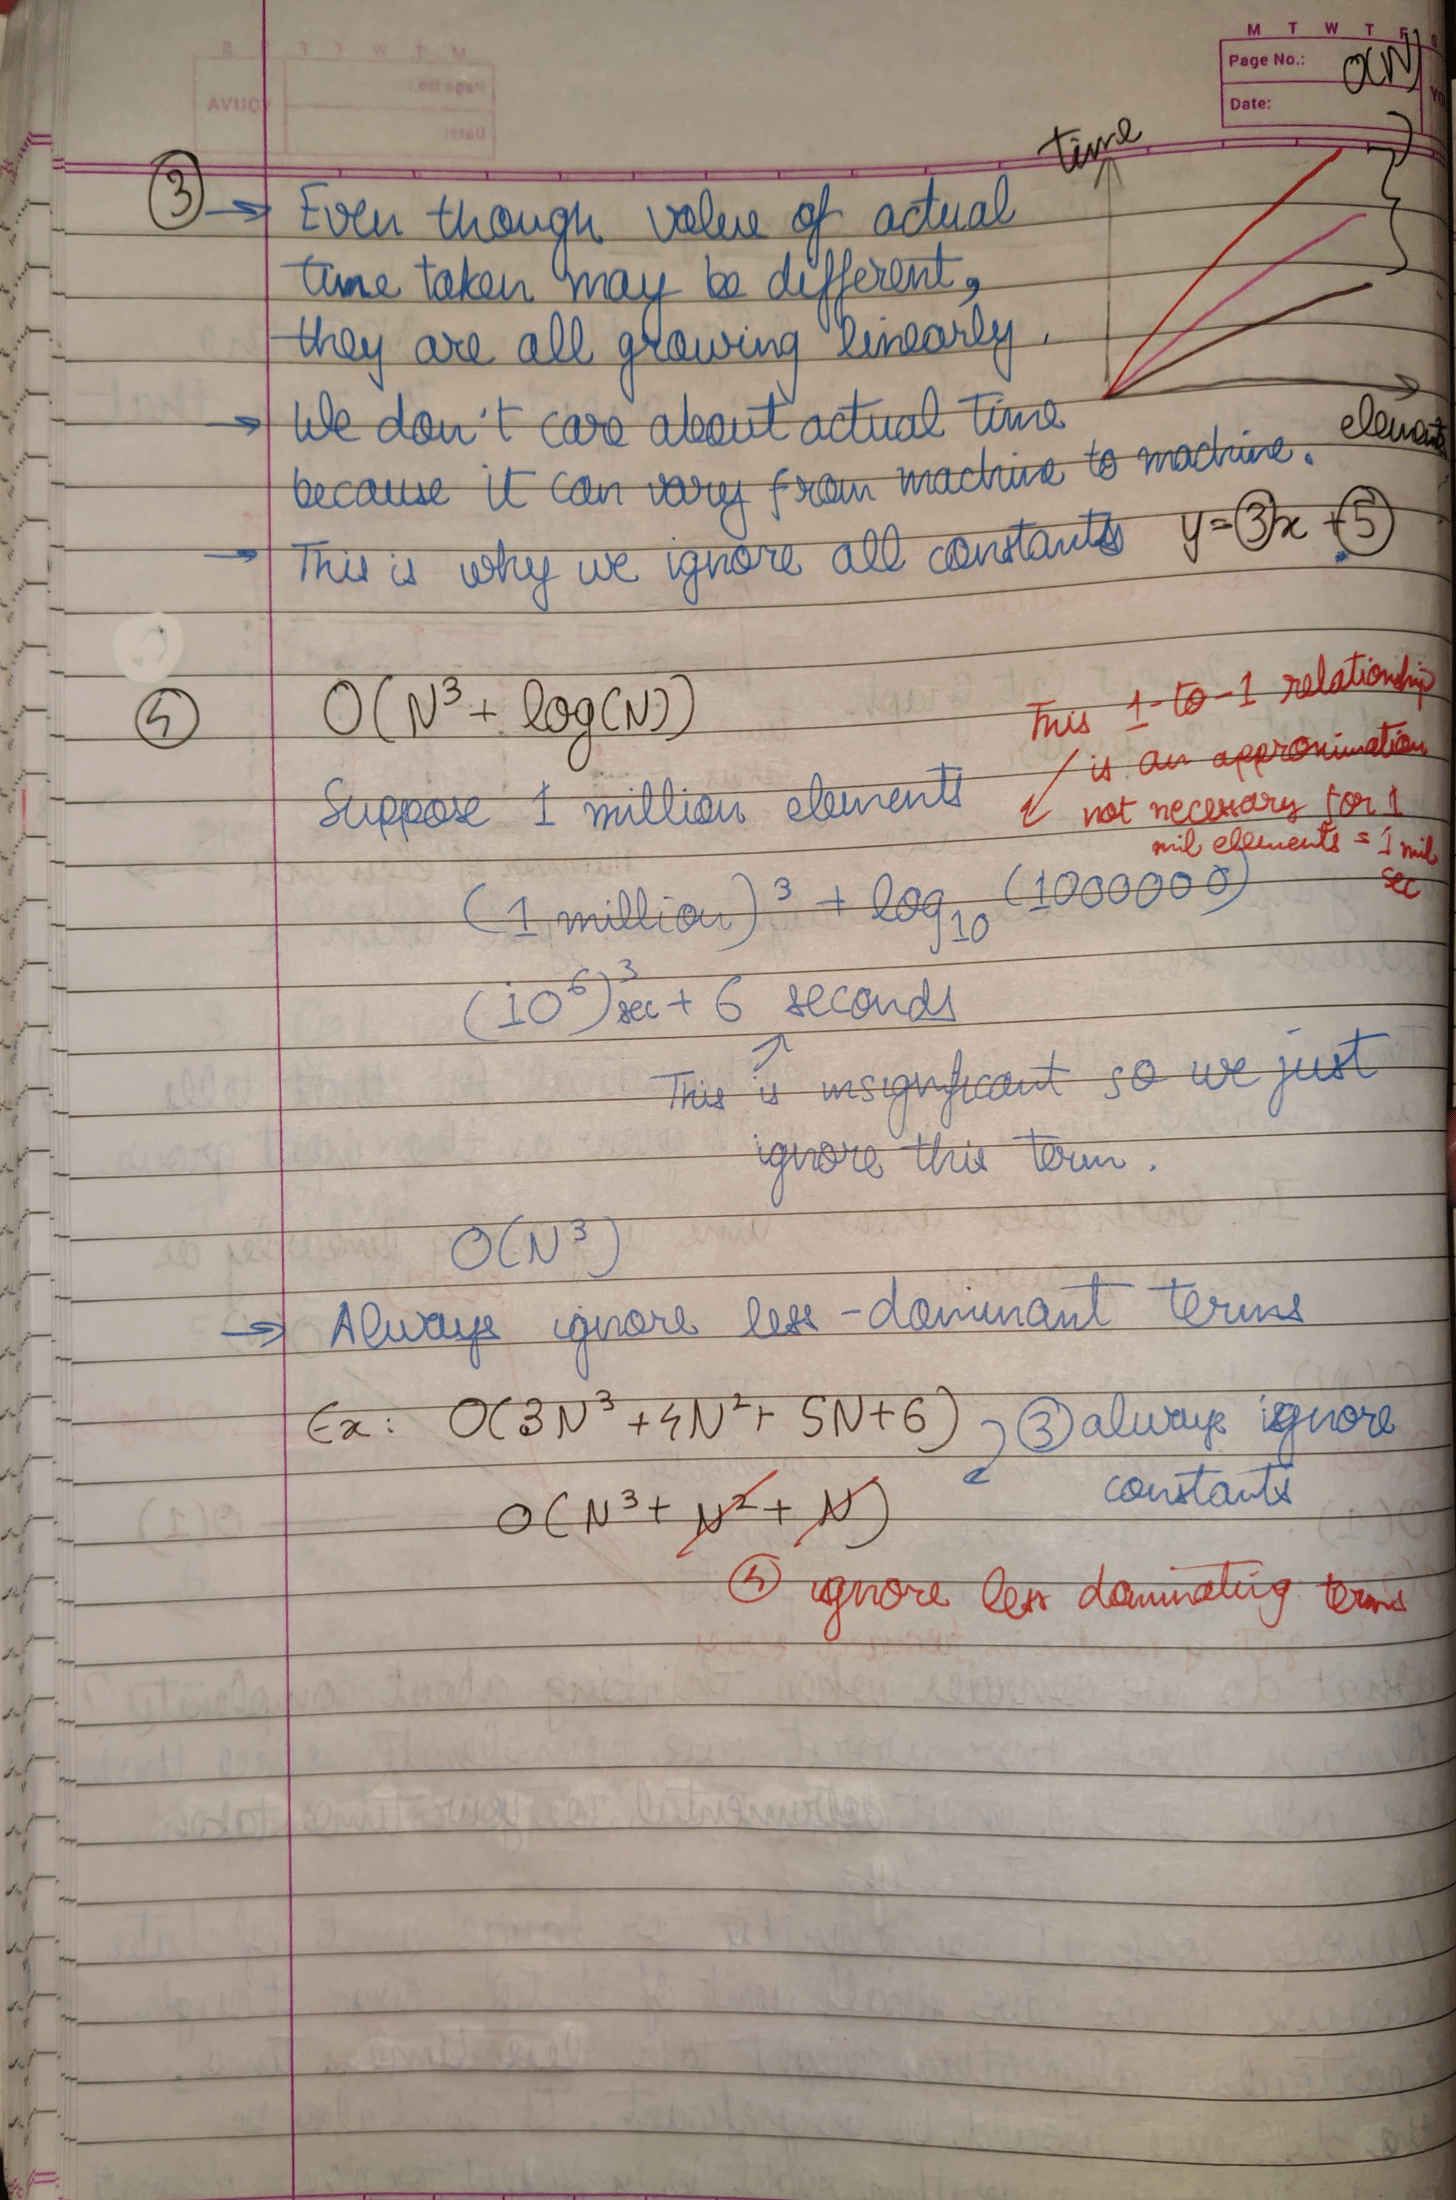 M T W T F S
Page No.:
Date:
YO
O(N)
time
③ → Even though value of actual
time taken may be different,
they are all growing linearly.
elements
→ We don't care about actual time
because it can vary from machine to machine.
→ This is why we ignore all constants y = 3x + 5
④ O(N³ + log(N))
This 1-to-1 relationship
is an approximation
not necessary for 1
mil elements = 1 mil
sec
Suppose 1 million elements
(1 million)³ + log₁₀ (1000000)
(10⁶)³ sec + 6 seconds
This is insignificant so we just
ignore this term.
O(N³)
→ Always ignore less-dominant terms
Ex: O(3N³ + 4N² + 5N + 6) ③ always ignore
constants
O(N³ + N² + N)
④ ignore less dominating terms